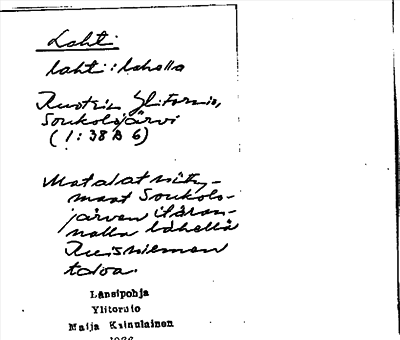 Lahti
lahti : lahella
Ruotsin Ylitornio,
Soukolojärvi
(1:38 B 6)
Matalat niity-
maat Soukolo-
järven itäran-
nalla lähellä
Ruisniemen
taloa.
Länsipohja
Ylitornio
Maija Kainulainen